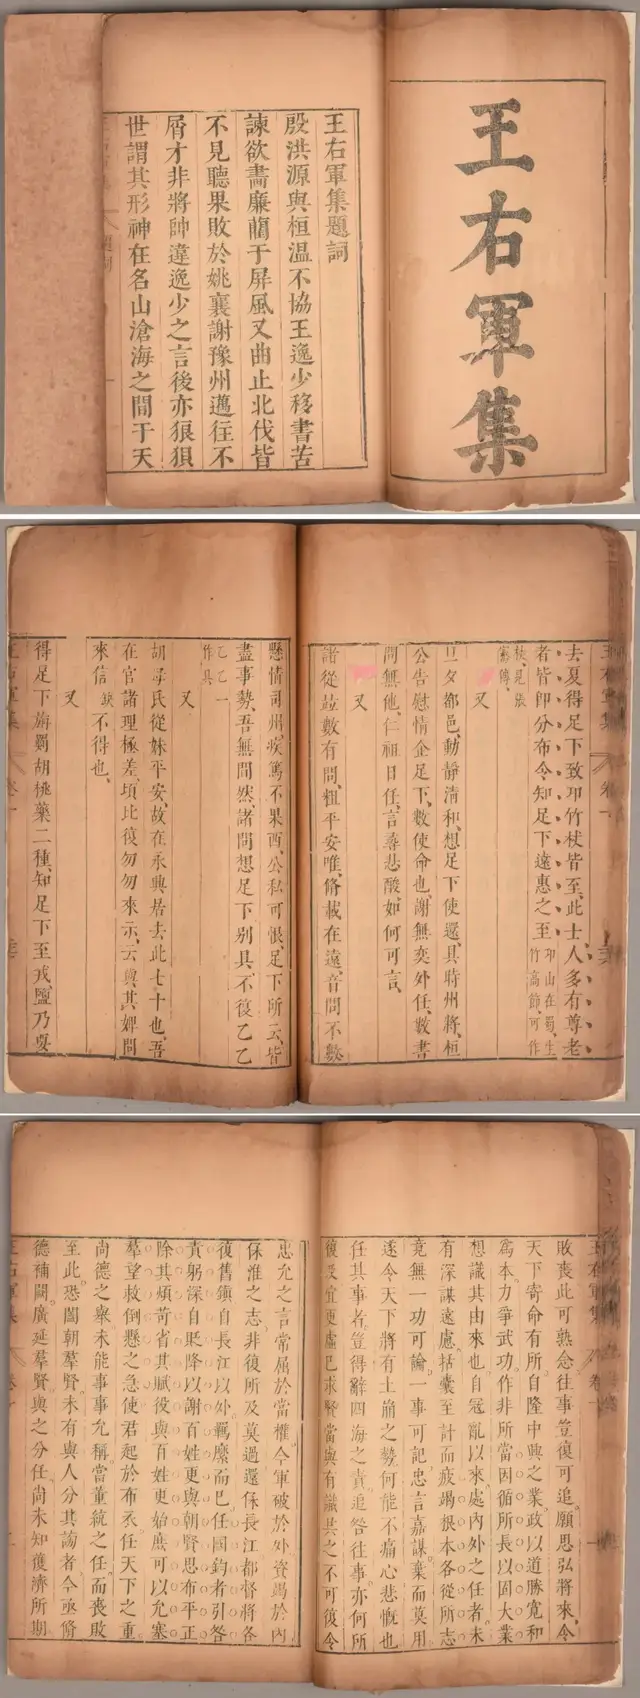 王右軍集
王右軍集題詞
殷洪源與桓溫不協王逸少移書苦
諫欲畵廉藺于屏風又曲止北伐皆
不見聽果敗於姚襄謝豫州邁往不
屑才非將帥違逸少之言後亦狼狽
世謂其形神在名山滄海之間于天
去夏得足下致邛竹杖皆至、此士人多有尊老
者皆即分布令知足下遠惠之至邛山在蜀、生竹高節、可作
杖、見張騫傳、
又
旦夕都邑、動靜清和、想足下使還、具時州將、桓
公告慰情企足下、數使命也、謝無奕外任、數書
問無他、仁祖日任、言尋悲酸、如何可言、
又
諸從竝數有問、粗平安唯、脩載在遠、音問不數
懸情司州疾篤不果西、公私可恨、足下所云、皆
盡事勢、吾無間然、諸問想足下別具、不復乙乙
乙乙一作具
又
胡母氏從妹平安、故在永興居去此七十也、吾
在官諸理極差、頃比復勿勿來示、云與其婢問
來信缺不得也、
又
得足下旃罽胡桃藥二種、知足下至戎鹽乃要
王右軍集 卷一
敗喪此可熟念往事豈復可追願思弘將來、令
天下寄命有所自隆中興之業政以道勝寬和
爲本力爭武功作非所當因循所長以固大業
想識其由來也自寇亂以來處內外之任者未
有深謀遠慮括囊至計而疲竭根本各從所志
竟無一功可論一事可記忠言嘉謀棄而莫用
遂令天下將有土崩之勢何能不痛心悲慨也
任其事者豈得辭四海之責追咎往事亦何所
復及宜更虛已求賢當與有識共之不可復令
忠允之言常屈於當權今軍破於外資竭於內
保淮之志非復所及莫過還保長江都督將各
復舊鎮自長江以外羈縻而已任國鈞者引咎
責躬深自貶降以謝百姓更與朝賢思布平正
除其煩苛省其賦役與百姓更始庶可以允塞
羣望救倒懸之急使君起於布衣任天下之重
尚德之舉未能事事允稱當董統之任而喪敗
至此恐闔朝羣賢未有與人分其謗者今亟脩
德補闕廣延羣賢與之分任尚未知獲濟所期
王右軍集 卷一